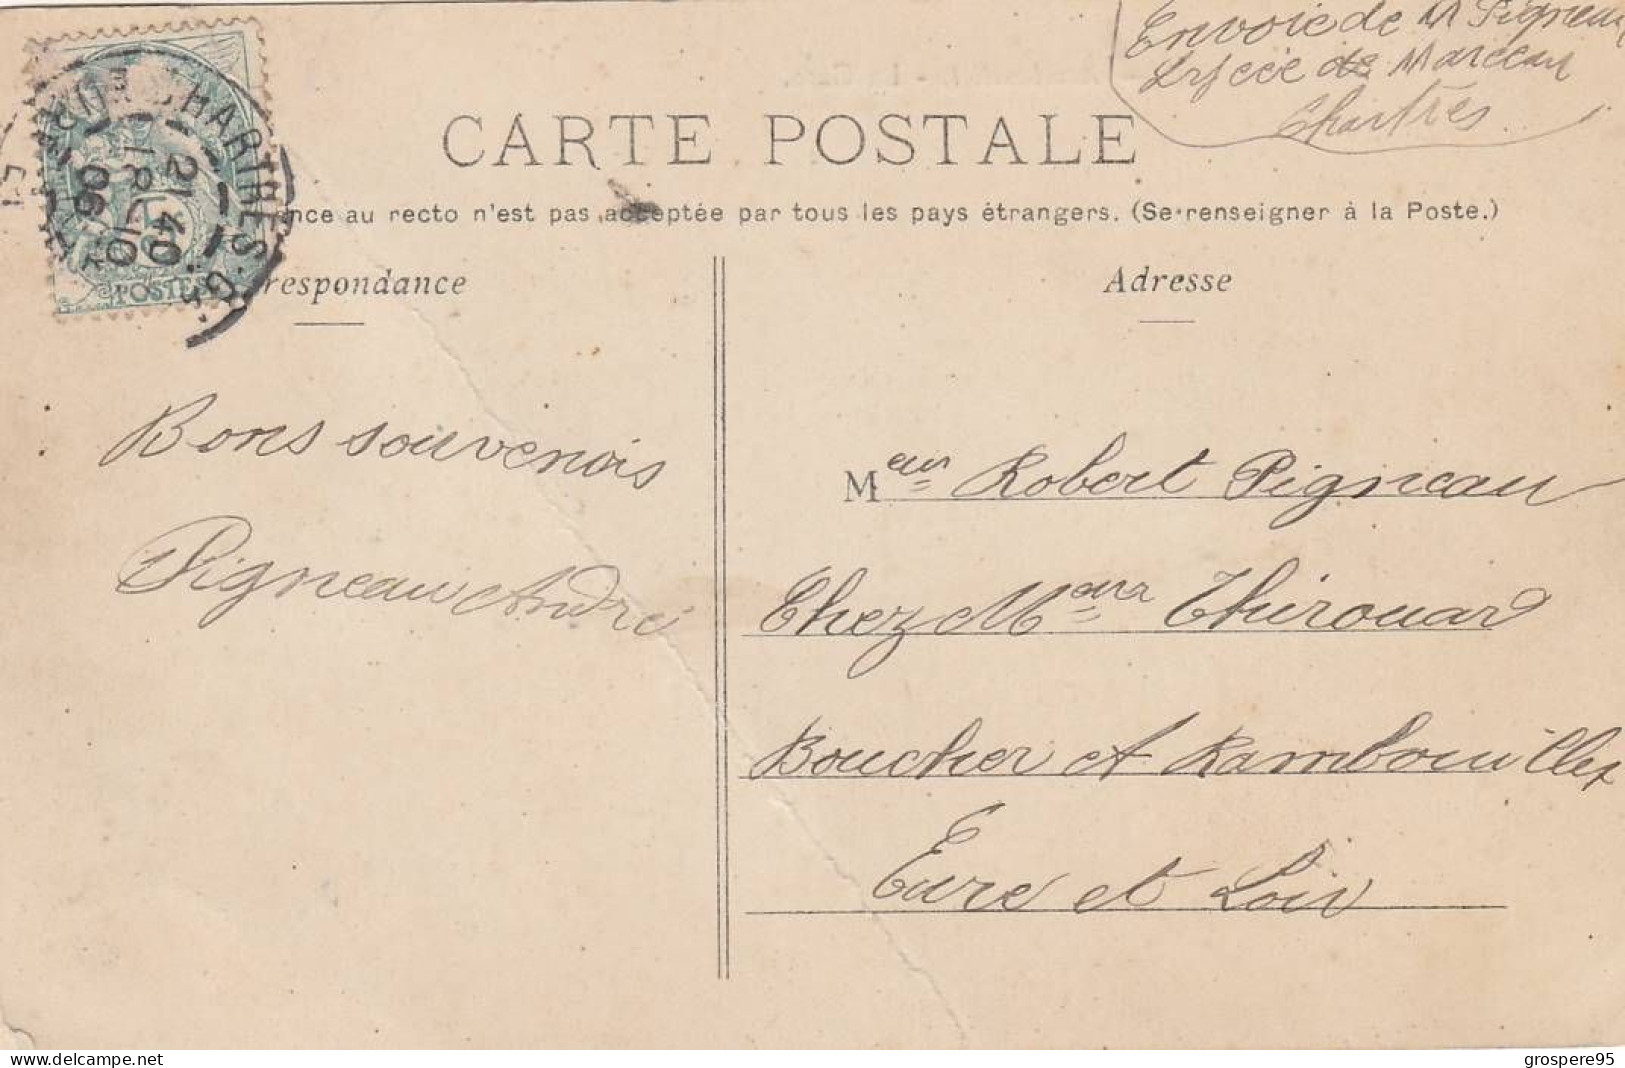 Envoie de M Pigneau
Lycée de Marceau
Chartres
CARTE POSTALE
nce au recto n'est pas acceptée par tous les pays étrangers. (Se renseigner à la Poste.)
respondance
Adresse
CHARTRES
21 40
18 - 10
06
5
POSTES
Bons souvenois
Pigneau André
Meur Robert Pigneau
Chez Meur Thirouard
Boucher A Rambouillet
Eure et Loir
www.delcampe.net
grospere95